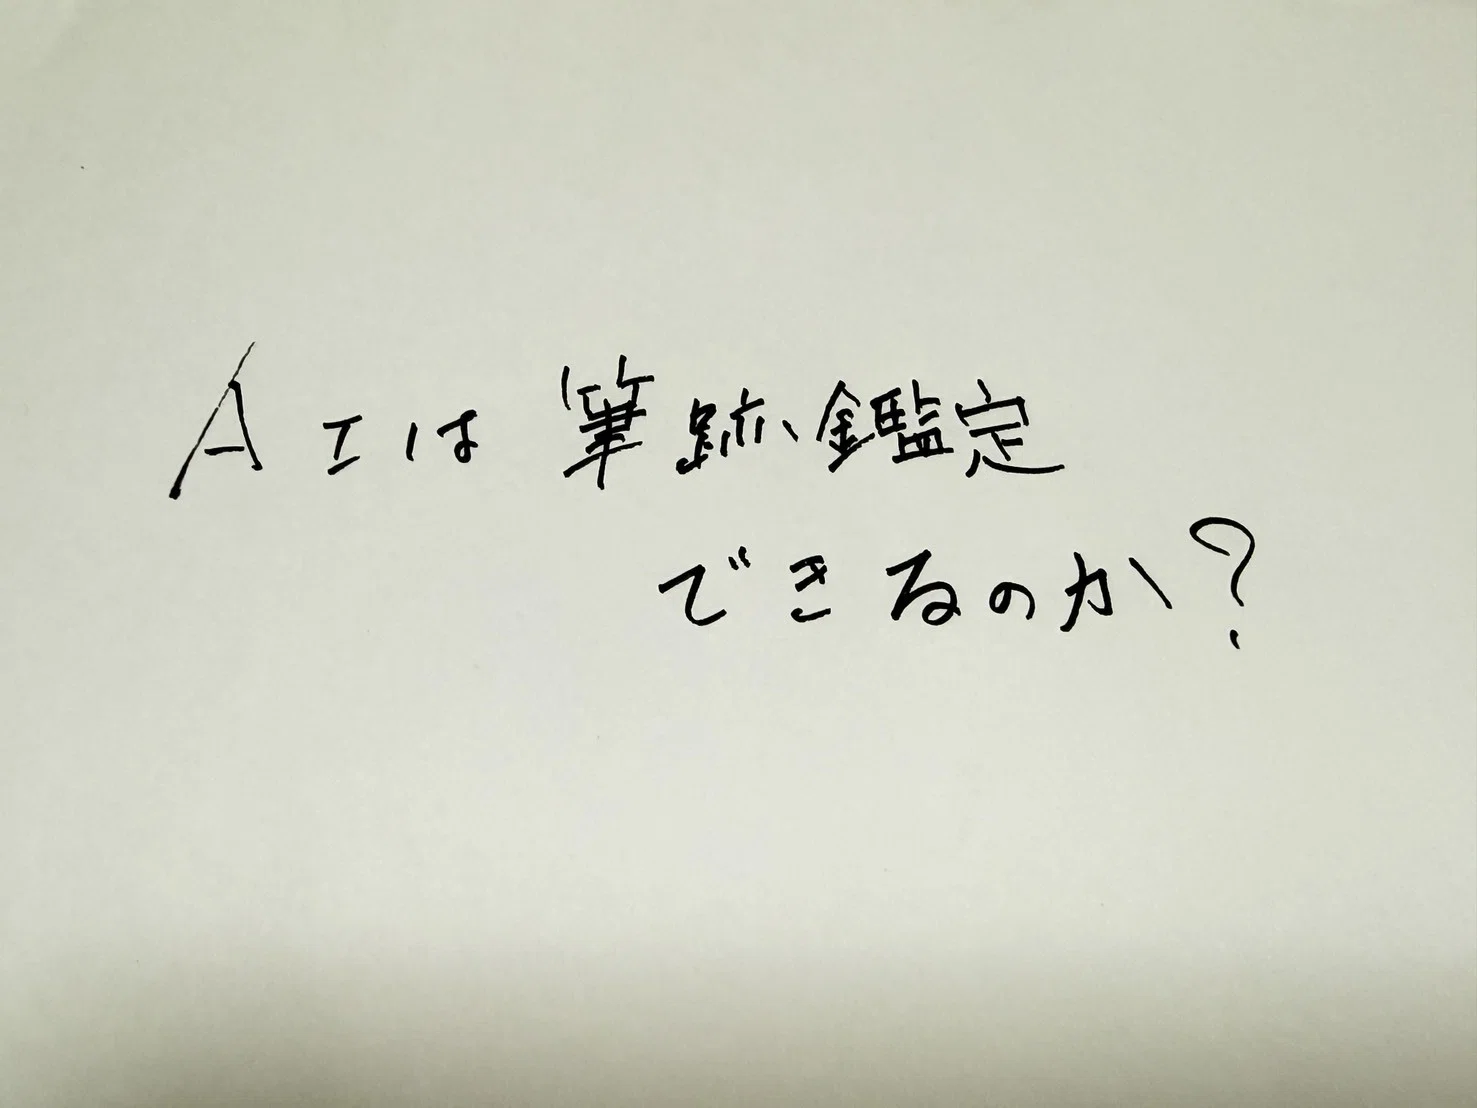 AIは筆跡鑑定
できるのか?